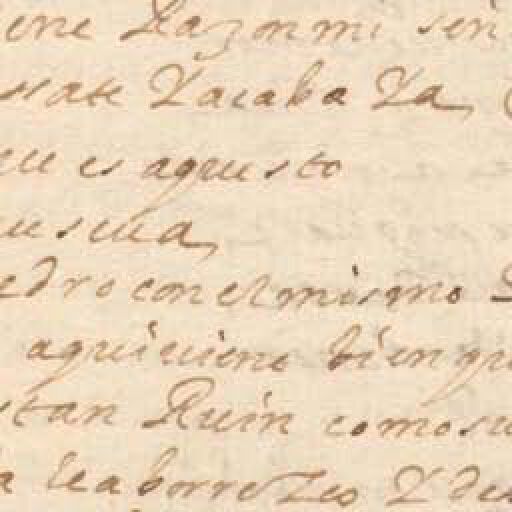 ene Razon mi señ
state Yacaba Ya
que es aqueesto
uscua
edro con el mismo
aqui viene bien qu
stan Ruin como su
a leaborrezco Y de